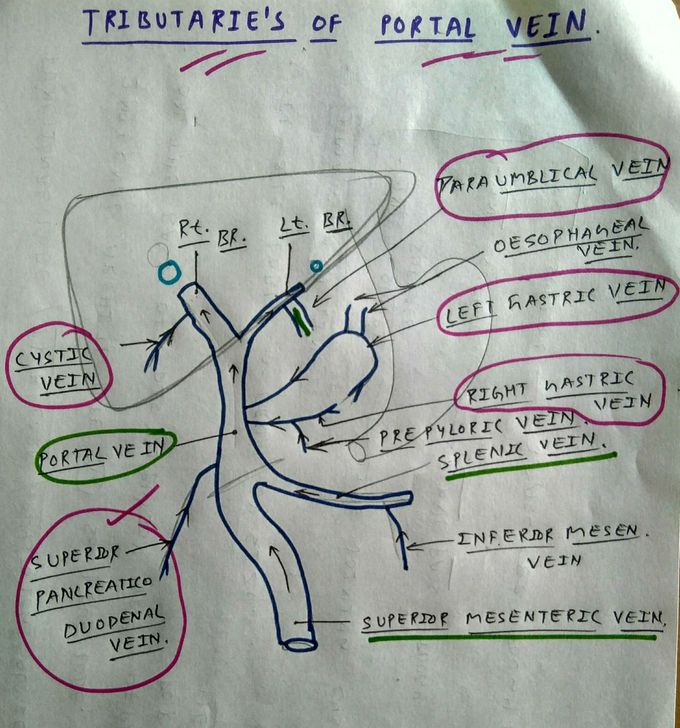 TRIBUTARIE'S OF PORTAL VEIN.
PARAUMBLICAL VEIN
Rt. BR.
Lt. BR.
OESOPHAGEAL
VEIN.
LEFT GASTRIC VEIN
CYSTIC
VEIN
RIGHT GASTRIC
VEIN
PREPYLORIC VEIN.
PORTAL VEIN
SPLENIC VEIN.
INFERIOR MESEN.
VEIN
SUPERIOR
PANCREATICO
DUODENAL
VEIN.
SUPERIOR MESENTERIC VEIN.